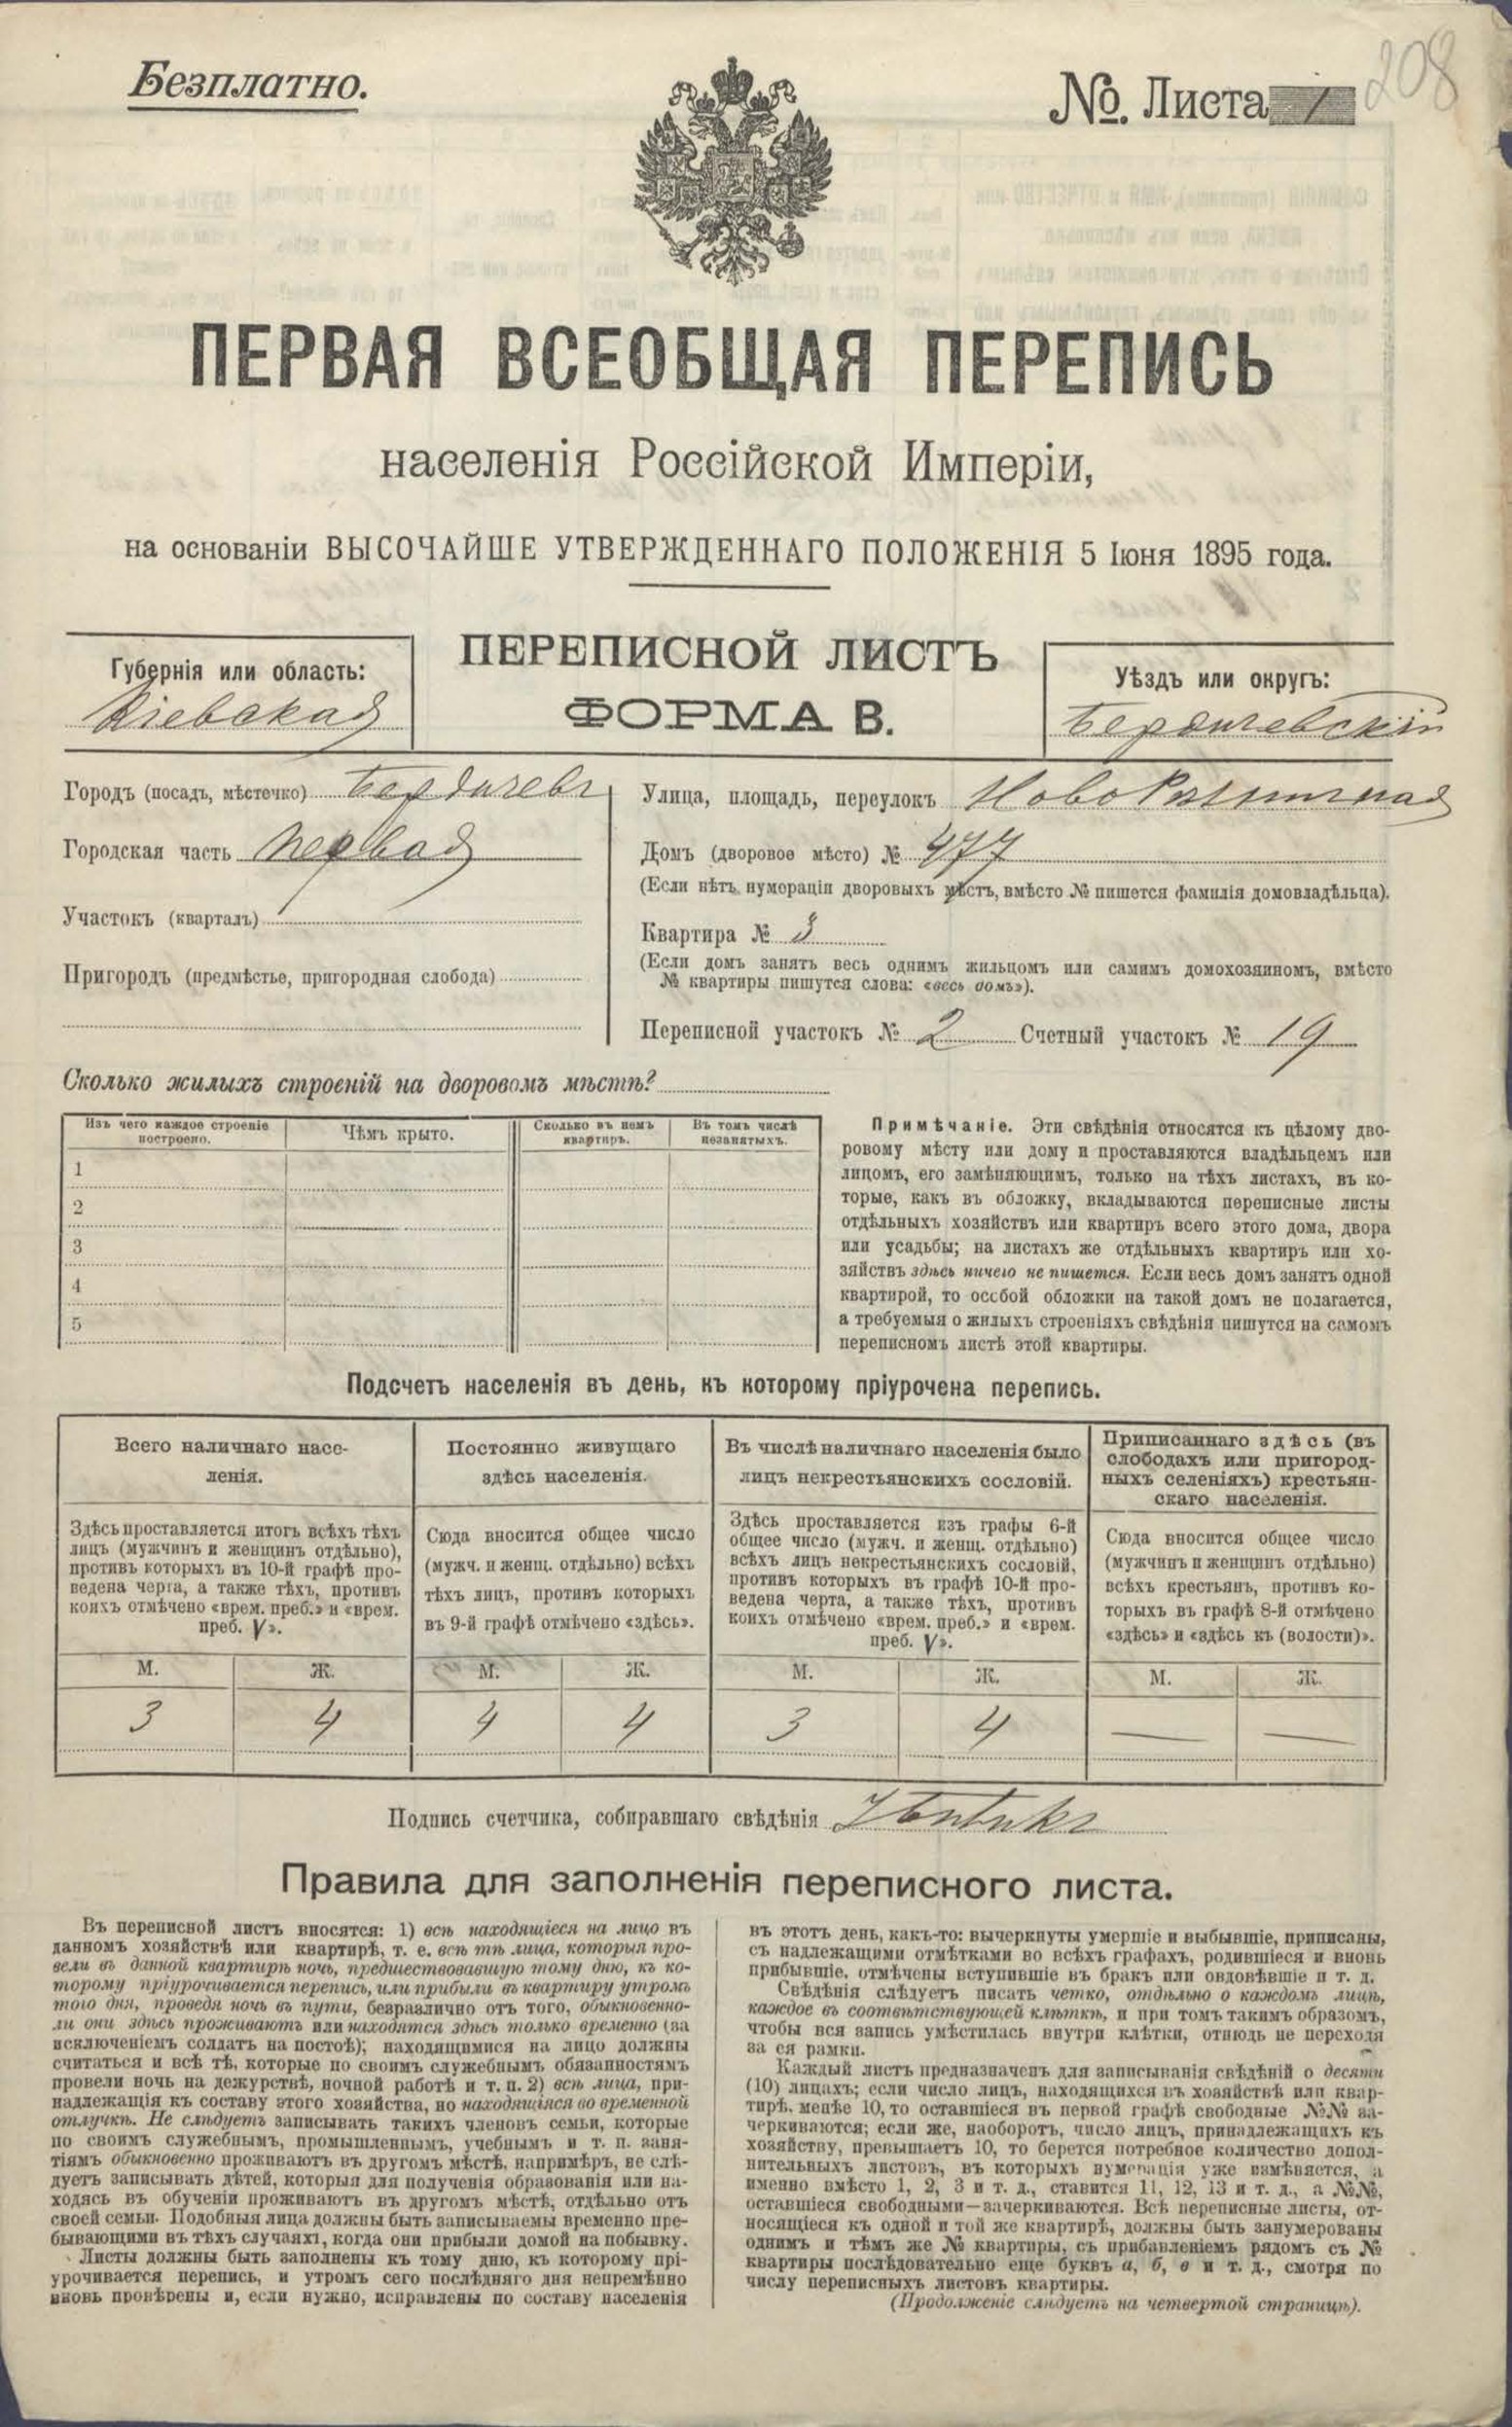 Безплатно.
№. Листа
208
ПЕРВАЯ ВСЕОБЩАЯ ПЕРЕПИСЬ
населенія Россійской Имперіи,
на основаніи ВЫСОЧАЙШЕ УТВЕРЖДЕННАГО ПОЛОЖЕНІЯ 5 Іюня 1895 года.
ПЕРЕПИСНОЙ ЛИСТЪ
ФОРМА В.
Губернія или область:
Кіевская
Уѣздъ или округъ:
Бердичевскій
Городъ (посадъ, мѣстечко) Бердичевъ
Городская часть первая
Участокъ (кварталъ)
Пригородъ (предмѣстье, пригородная слобода)
Улица, площадь, переулокъ
Домъ (дворовое мѣсто) № 477
(Если нѣтъ нумораціи дворовыхъ мѣстъ, вмѣсто № пишется фамилія домовладѣльца).
Квартира № 3
(Если домъ занятъ весь однимъ жильцомъ или самимъ домохозяиномъ, вмѣсто
№ квартиры пишутся слова: «весь домъ»).
Переписной участокъ № 2 Счетный участокъ № 19
Сколько жилыхъ строеній на дворовомъ мѣстѣ?
Изъ чего каждое строеніе
построено.
Чѣмъ крыто.
Сколько въ немъ
квартиръ.
Въ томъ числѣ
незанятыхъ.
1
2
3
4
5
Примѣчаніе. Эти свѣдѣнія относятся къ цѣлому дво-
ровому мѣсту или дому и проставляются владѣльцемъ или
лицомъ, его замѣняющимъ, только на тѣхъ листахъ, въ ко-
торые, какъ въ обложку, вкладываются переписные листы
отдѣльныхъ хозяйствъ или квартиръ всего этого дома, двора
или усадьбы; на листахъ же отдѣльныхъ квартиръ или хо-
зяйствъ здѣсь ничего не пишется. Если весь домъ занятъ одной
квартирой, то особой обложки на такой домъ не полагается,
а требуемыя о жилыхъ строеніяхъ свѣдѣнія пишутся на самомъ
переписномъ листѣ этой квартиры.
Подсчетъ населенія въ день, къ которому пріурочена перепись.
Всего наличнаго насе-
ленія.
Здѣсь проставляется итогъ всѣхъ тѣхъ
лицъ (мужчинъ и женщинъ отдѣльно),
противъ которыхъ въ 10-й графѣ про-
ведена черта, а также тѣхъ, противъ
коихъ отмѣчено «врем. преб.» и «врем.
преб. V».
Постоянно живущаго
здѣсь населенія.
Сюда вносится общее число
(мужч. и женщ. отдѣльно) всѣхъ
тѣхъ лицъ, противъ которыхъ
въ 9-й графѣ отмѣчено «здѣсь».
Въ числѣ наличнаго населенія было
лицъ некрестьянскихъ сословій.
Здѣсь проставляется изъ графы 6-й
общее число (мужч. и женщ. отдѣльно)
всѣхъ лицъ некрестьянскихъ сословій,
противъ которыхъ въ графѣ 10-й про-
ведена черта, а также тѣхъ, противъ
коихъ отмѣчено «врем. преб.» и «врем.
преб. V».
Приписаннаго здѣсь (въ
слободахъ или пригород-
ныхъ селеніяхъ) крестьян-
скаго населенія.
Сюда вносится общее число
(мужчинъ и женщинъ отдѣльно)
всѣхъ крестьянъ, противъ ко-
торыхъ въ графѣ 8-й отмѣчено
«здѣсь» и «здѣсь къ (волости)».
М. Ж. М. Ж. М. Ж. М. Ж.
3 4 4 4 3 4 — —
Подпись счетчика, собиравшаго свѣдѣнія
Правила для заполненія переписного листа.
Въ переписной листъ вносятся: 1) всѣ находящіеся на лицо въ
данномъ хозяйствѣ или квартирѣ, т. е. всѣ тѣ лица, которыя про-
вели въ данной квартирѣ ночь, предшествовавшую тому дню, къ ко-
торому пріурочивается перепись, или прибыли въ квартиру утромъ
того дня, проведя ночь въ пути, безразлично отъ того, обыкновенно-
ли они здѣсь проживаютъ или находятся здѣсь только временно (за
исключеніемъ солдатъ на постоѣ); находящимися на лицо должны
считаться и всѣ тѣ, которые по своимъ служебнымъ обязанностямъ
провели ночь на дежурствѣ, ночной работѣ и т. п. 2) всѣ лица, при-
надлежащія къ составу этого хозяйства, но находящіяся во временной
отлучкѣ. Не слѣдуетъ записывать такихъ членовъ семьи, которые
по своимъ служебнымъ, промышленнымъ, учебнымъ и т. п. заня-
тіямъ обыкновенно проживаютъ въ другомъ мѣстѣ, напримѣръ, не слѣ-
дуетъ записывать дѣтей, которыя для полученія образованія или на-
ходясь въ обученіи проживаютъ въ другомъ мѣстѣ, отдѣльно отъ
своей семьи. Подобныя лица должны быть записываемы временно пре-
бывающими въ тѣхъ случаяхъ, когда они прибыли домой на побывку.
Листы должны быть заполнены къ тому дню, къ которому прі-
урочивается перепись, и утромъ сего послѣдняго дня непремѣнно
вновь провѣрены и, если нужно, исправлены по составу населенія
въ этотъ день, какъ-то: вычеркнуты умершіе и выбывшіе, приписаны,
съ надлежащими отмѣтками во всѣхъ графахъ, родившіеся и вновь
прибывшіе, отмѣчены вступившіе въ бракъ или овдовѣвшіе и т. д.
Свѣдѣнія слѣдуетъ писать четко, отдѣльно о каждомъ лицѣ,
каждое въ соотвѣтствующей клѣткѣ, и при томъ такимъ образомъ,
чтобы вся запись умѣстилась внутри клѣтки, отнюдь не переходя
за ея рамки.
Каждый листъ предназначенъ для записыванія свѣдѣній о десяти
(10) лицахъ; если число лицъ, находящихся въ хозяйствѣ или квар-
тирѣ, менѣе 10, то оставшіеся въ первой графѣ свободные №№ за-
черкиваются; если же, наоборотъ, число лицъ, принадлежащихъ къ
хозяйству, превышаетъ 10, то берется потребное количество допол-
нительныхъ листовъ, въ которыхъ нумерація уже измѣняется, а
именно вмѣсто 1, 2, 3 и т. д., ставится 11, 12, 13 и т. д., а №№,
оставшіеся свободными—зачеркиваются. Всѣ переписные листы, от-
носящіеся къ одной и той же квартирѣ, должны быть занумерованы
однимъ и тѣмъ же № квартиры, съ прибавленіемъ рядомъ съ №
квартиры послѣдовательно еще буквъ а, б, в и т. д., смотря по
числу переписныхъ листовъ квартиры.
(Продолженіе слѣдуетъ на четвертой страницѣ).